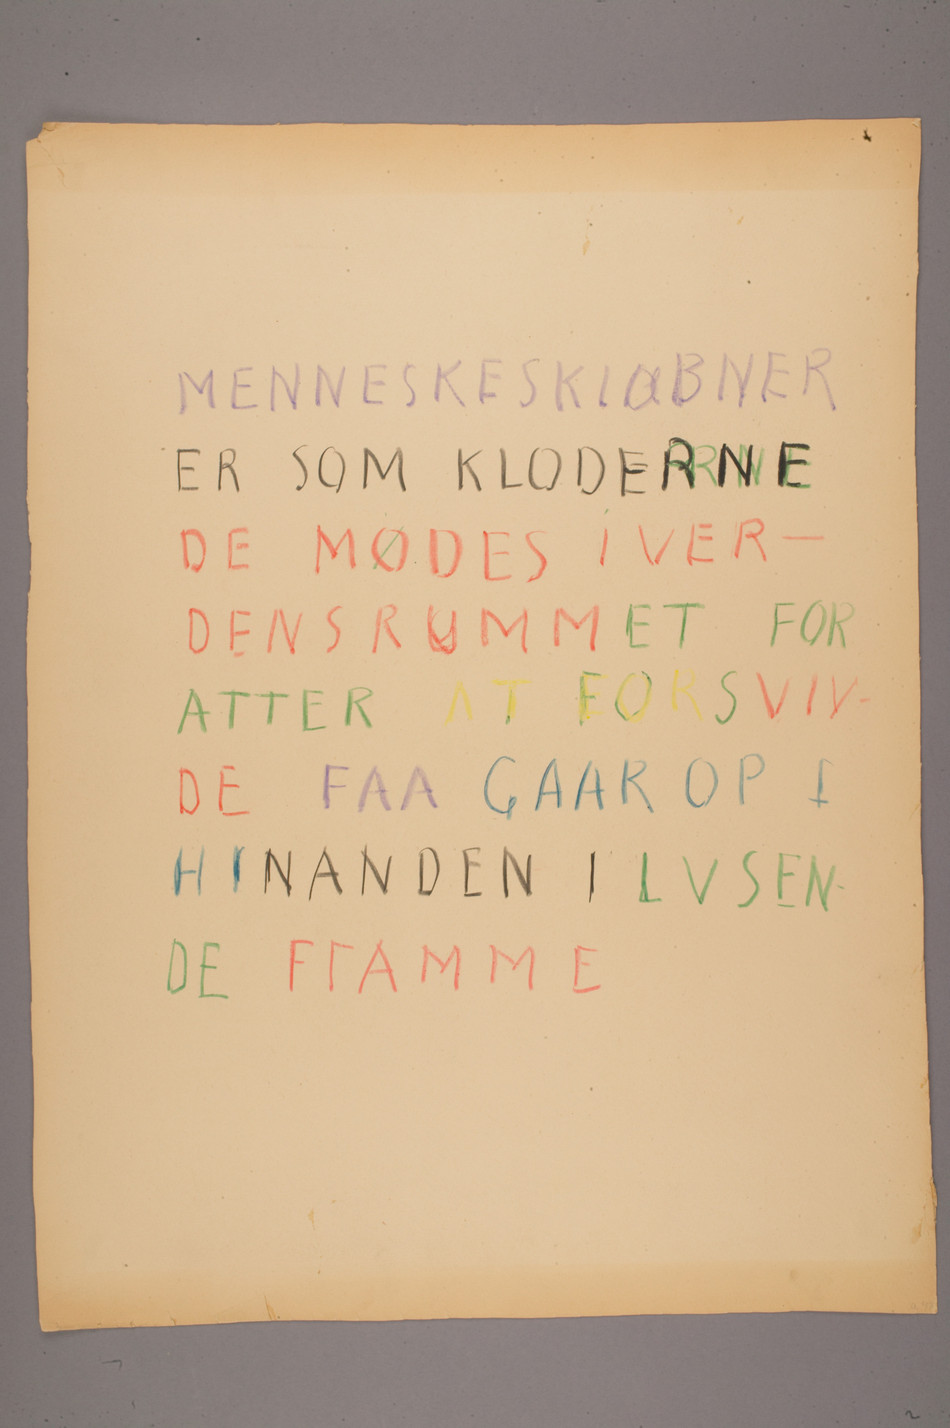 MENNESKESKIØBNER
ER SOM KLODERNE
DE MØDES I VER—
DENSRUMMET FOR
ATTER AT FORSVIV-
DE FAA GAAR OP I
HINANDEN I LVSEN-
DE FΓAMME